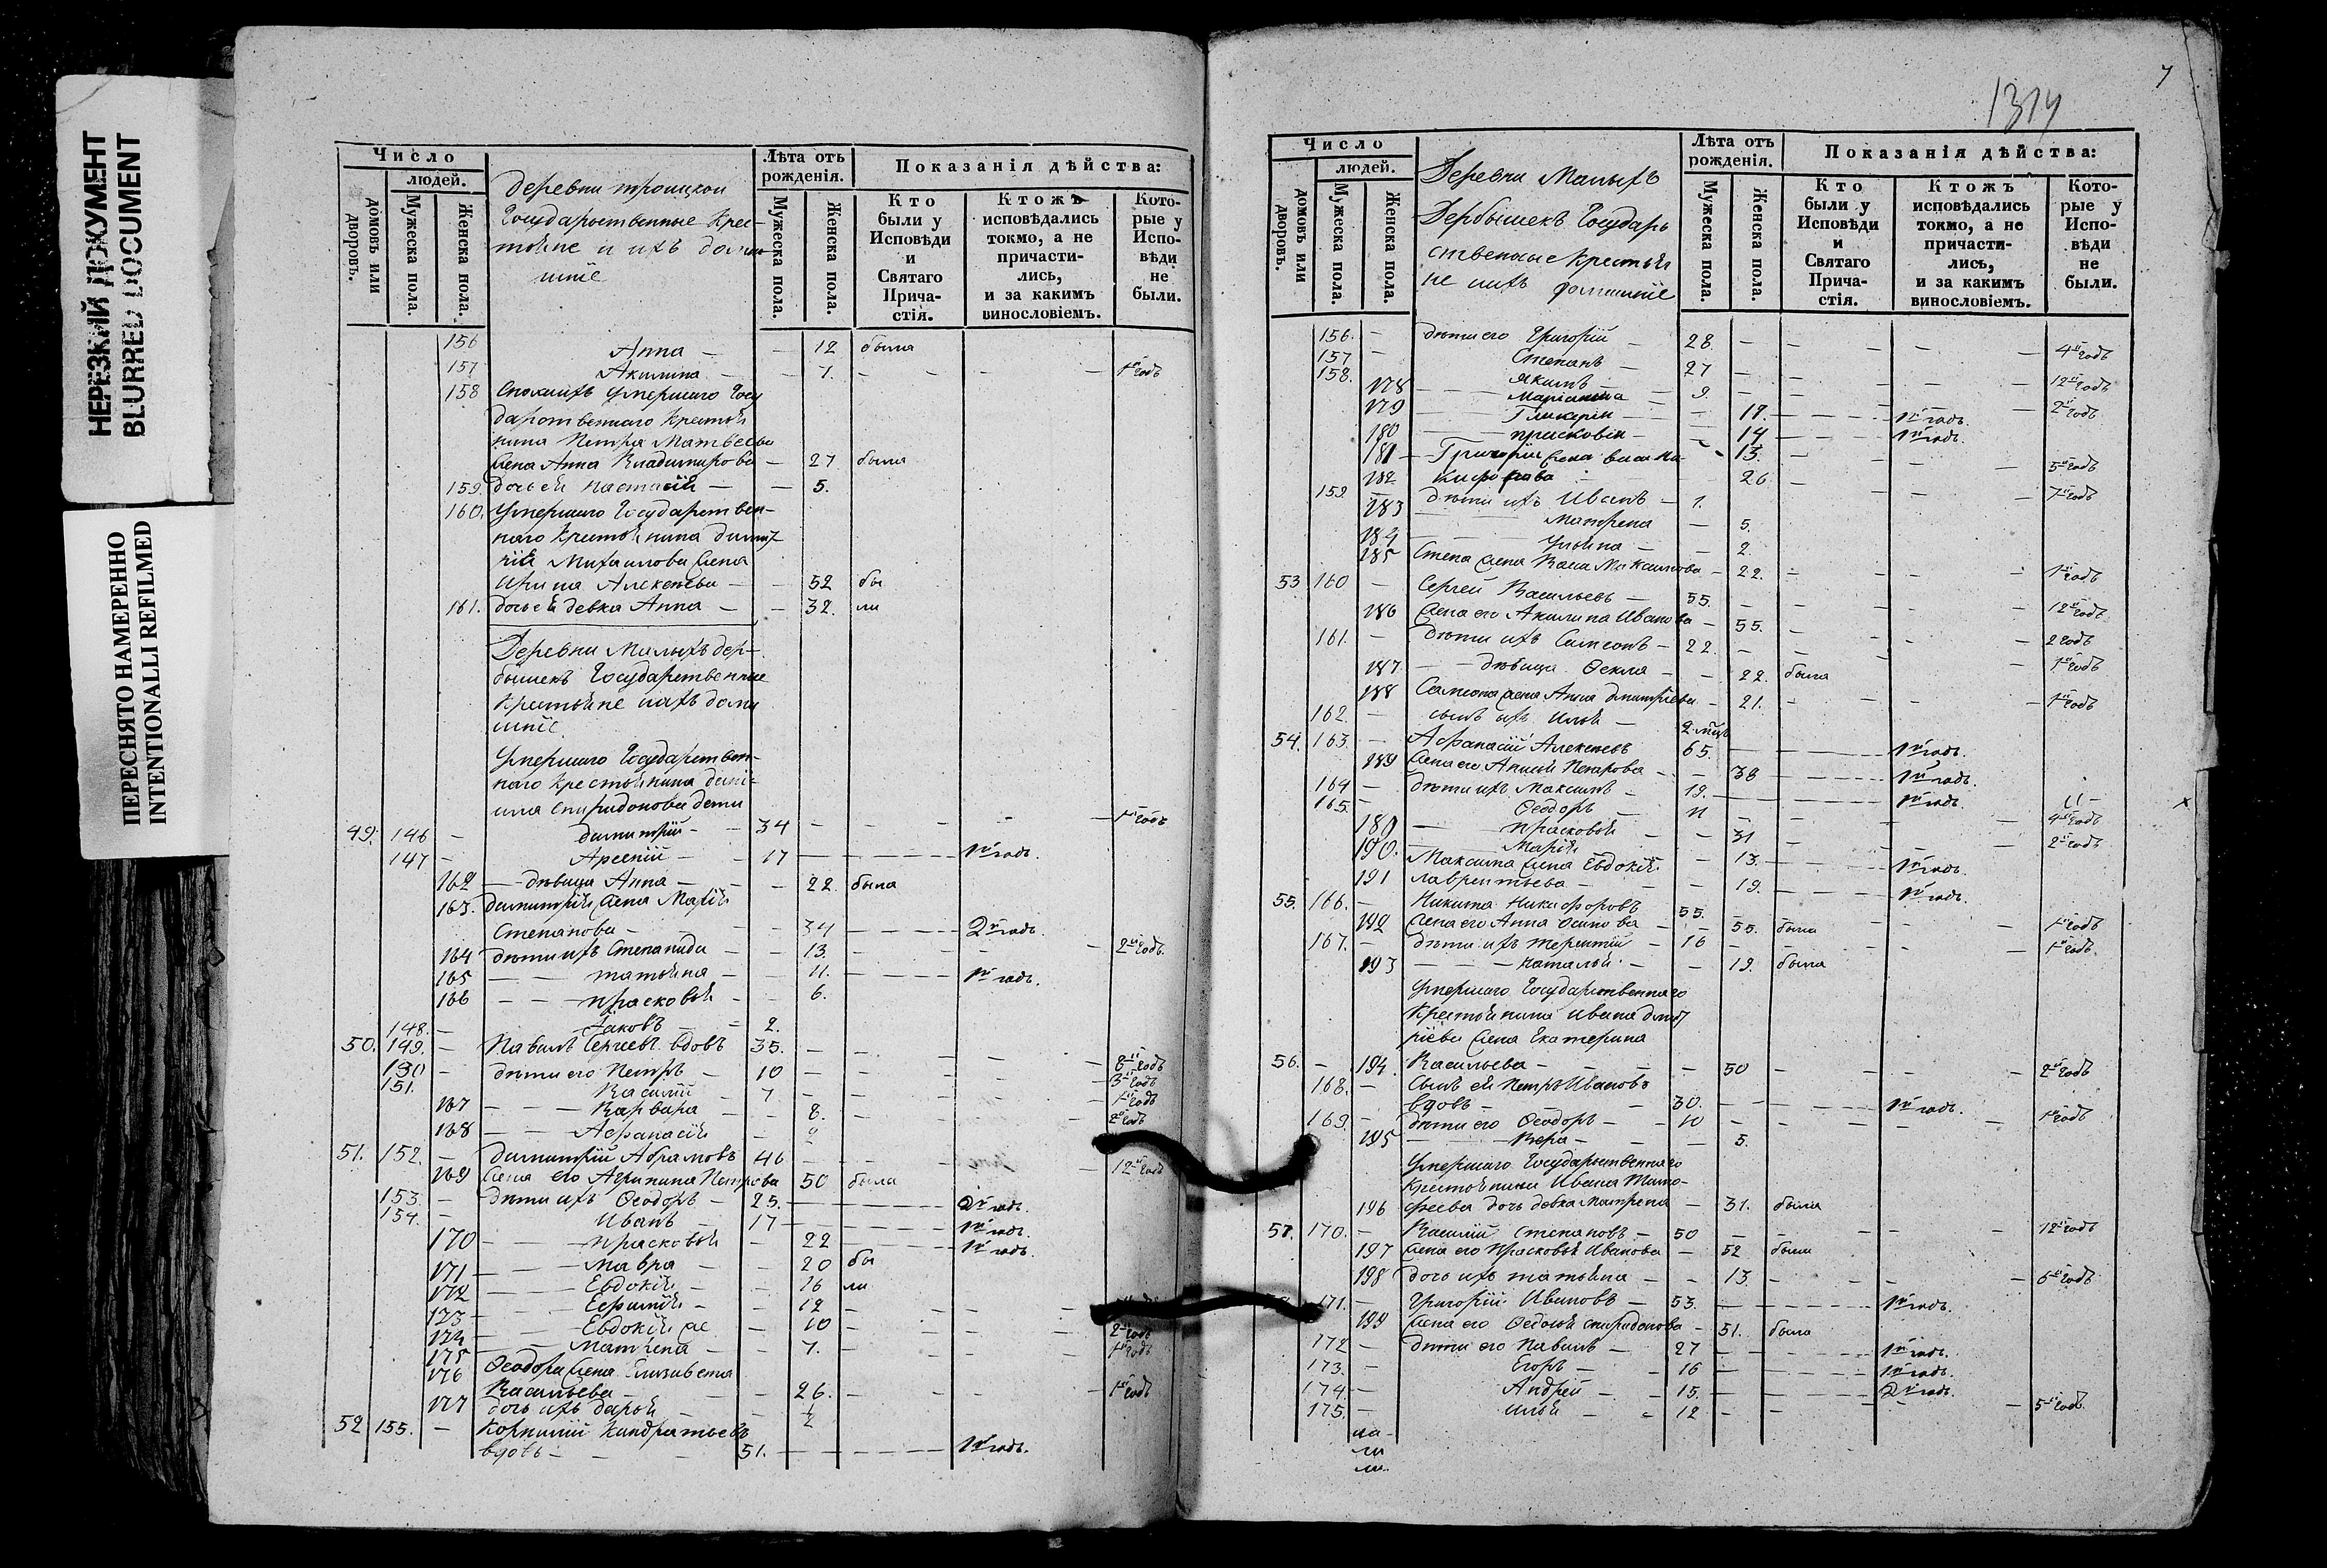 НЕРЕЗКИЙ ДОКУМЕНТ
BLURRED DOCUMENT
ПЕРЕСНЯТО НАМЕРЕННО
INTENTIONALLI REFILMED
Число
людей.
домовъ или дворовъ.
Мужеска пола.
Женска пола.
деревни троицкой
Государственные крес-
тьяне и ихъ домаш
ніе
Лѣта отъ рожденія.
Мужеска пола.
Женска пола.
Показанія дѣйства:
Кто были у Исповѣди и Святаго Прича-стія.
Ктожъ исповѣдались токмо, а не причасти-лись, и за какимъ винословіемъ.
Кото-рые у Испо-вѣди не были.
156 Анна — — 12 была
157 Акилина — — 7. — — — 1й годъ
158 Умершаго Госу
дарственнаго крестья
нина Петра Матвеева
жена Анна Владимирова — 27 была
159. дочь ей Настасія — — 5.
160. Умершаго Государствен-
наго крестьянина Димит
рія Михаилова жена
Ирина Алексеева — — 52 бы
161. дочь ей девка Анна — — 32. ли
Деревни Малыхъ дер-
бышекъ Государственные
крестьяне и ихъ дома
шніе.
Умершаго Государствен-
наго крестьянина дани-
ила Спиридонова дети
49. 146 — Димитрій — — 34 — — — — 1й годъ
147 — Арсеній — — 17 — — — 1й годъ.
162 — дѣвица Анна — — 22. была
163. Димитрія жена Марія
Степанова — — 34 — — — 2й годъ.
164 дѣти ихъ Степанида — — 13. — — — 2й годъ.
165 — — татьяна — — 11. — — — 1й годъ.
166 — — Прасковья — — 6.
148. — Іаковъ — — 2.
50. 149. — Павелъ Сергеевъ вдовъ 35. — — — — 8й годъ
150 — дѣти его Петръ — 10 — — — — 3й годъ
151. Василій — 7 — — — — 1й годъ
167 — — — Варвара — — 8. — — — 2й годъ
168 — — Афанасія — 2
51. 152. — Димитрій Абрамовъ 46 — — — — 12й годъ
169 жена его Агрипина Петрова 50 была
153. — дѣти ихъ Ѳеодоръ — 25. — — — 2й годъ.
154. — Иванъ — 17 — — — 1й годъ.
170 — — Прасковья — 22 — — 1й годъ.
171 — — Мавра — — 20 бы
172 — — Евдокія — — 16 ли
173 — — Евфимія — — 12 — — —
174 — — Евдокія же — 10 — — — 2й годъ
175 — — Матрена — — 7. — — — 1й годъ
176 Ѳеодора жена Елизавета
Васильева — — 26. — — — 1й годъ
177 дочь ихъ дарья — — ½
52 155. — Корнилій Кандратьевъ
вдовъ — — — 51. — — — 1й годъ.
7
1314
Число
людей.
домовъ или дворовъ.
Мужеска пола.
Женска пола.
Деревни Малыхъ
Дербышекъ Государь
ственные крестья
не и ихъ домашніе
Лѣта отъ рожденія.
Мужеска пола.
Женска пола.
Показанія дѣйства:
Кто были у Исповѣди и Святаго Прича-стія.
Ктожъ исповѣдались токмо, а не причасти-лись, и за какимъ винословіемъ.
Кото-рые у Испо-вѣди не были.
156. — дѣти его Григорій — 28. — — — — 4й годъ
157 — Степанъ — 27 — — — — 12й годъ
158. Якимъ — 9. — — — — 2й годъ
178 — — Маріанна — 18. — — — 1й годъ.
179 — — Гликерія — — 14 — — — 1й годъ.
180 — — Прасковія — — 13. — — — 5й годъ
181 — Григорія жена
182 — 26 — — — 7й годъ
159 — дѣти ихъ Иванъ — 1.
183 — — Матрена — 5.
184 — — Ульяна — — 2.
185 Степа жена Максимова — 22. — — — 1й годъ
53 160 — Сергей Васильевъ — 55. — — — — 12й годъ
186 жена его Акилина Иванова — 55. — — — 2 годъ
161. — дѣти ихъ Самсонъ — 22. — — — — 1й годъ
187. — — дѣвица Ѳекла — — 22. была
188 Самсона жена Анна Димитріева — 21. — — — 1й годъ
162. — сынъ ихъ Илья — 2 мѣц
54. 163. — Афанасій Алексеевъ 65. — — — 1й годъ.
189 жена его Петрова — — 38 — — — 1й годъ.
164 — дѣти ихъ Максимъ — 19. — — — 1й годъ.
165. Ѳеодоръ — 11 — — — — 4й годъ
180 — — Прасковья — — 31 — — — 2й годъ
190. — — Марія — 13. — — — 1й годъ.
Максима жена Евдокія
191 Лаврентьева — — — 19. — — — 1й годъ.
55. 166. — Никита Никифоровъ 55. — — — — 1й годъ
192 жена его Анна Осипова — — 55. была
167. — дѣти ихъ Терентій — 16 — — — — 1й годъ.
193 — — — Наталья — — 19. была
Умершаго Государственнаго
Крестьянина Ивана Димит
ріева жена Екатерина
56. — 194. Васильева — — — 50 — — — 2й годъ
168. — Сынъ ей Петръ Ивановъ
вдовъ — — — 30. — — — 1й годъ.
169. — дѣти его Ѳеодоръ — — 10 — — — — 1й годъ
195 — — — Вера — — — 5.
Умершаго Государственнаго
Крестьянина Ивана Тимо-
196 феева дочь девка Матрена — 31. была
57. 170. — Василій Степановъ — 50 — — — — 12й годъ
197 жена его Прасковья Иванова — 52 была
198 дочь ихъ татьяна — — 13. — — — 6й годъ
171. — Григорій Ивановъ — 53. — — — 1й годъ.
199 жена его Ѳедосья Спиридонова — 51. была
172 — дѣти его Павелъ — 27 — — — 1й годъ.
173. — Егоръ — — 16 — — — 1й годъ.
174. — Андрей — — 15. — — — 2й годъ.
175. — Илья — — 12 — — — — 5й годъ.